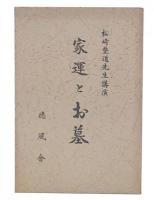 松崎整道先生講演
家運とお墓
徳風会